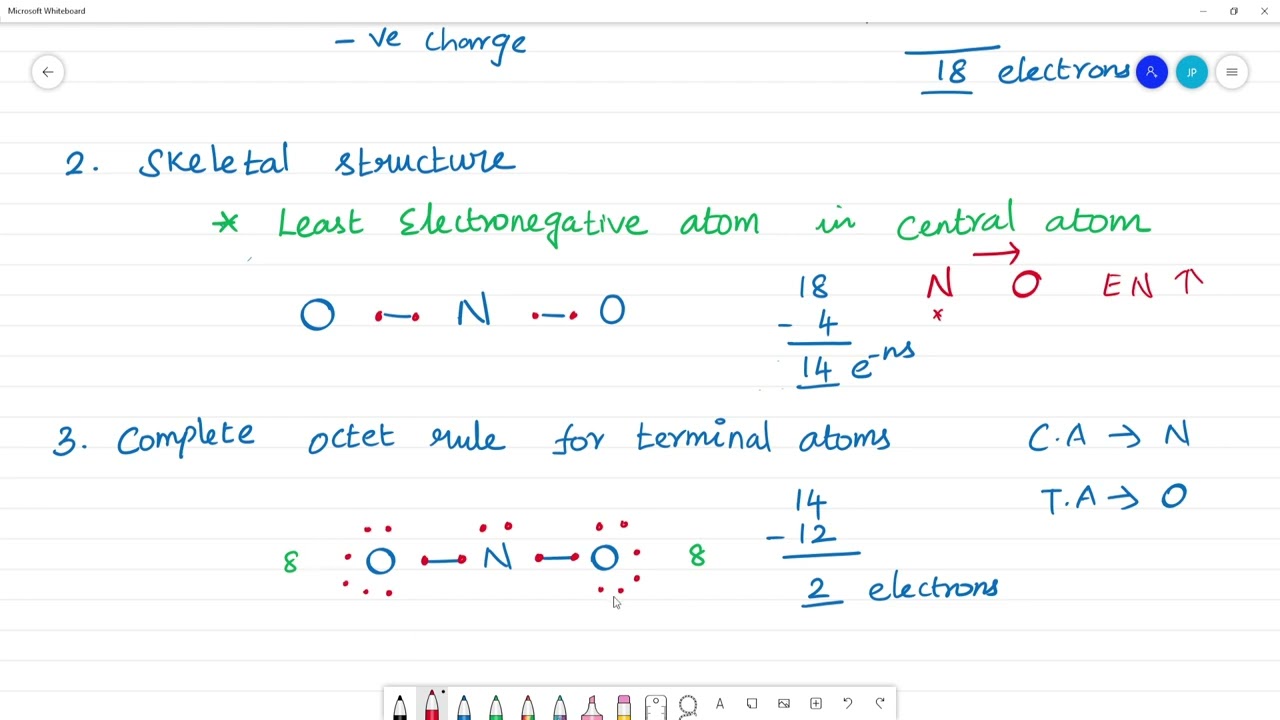 Microsoft Whiteboard
- ve charge
18 electrons
JP
2. Skeletal structure
* Least Electronegative atom in central atom
O •–• N •–• O
18
- 4
14 e-ns
N → O EN ↑
*
3. Complete octet rule for terminal atoms
C.A → N
T.A → O
14
- 12
2 electrons
8 O •–• N •–• O 8
A